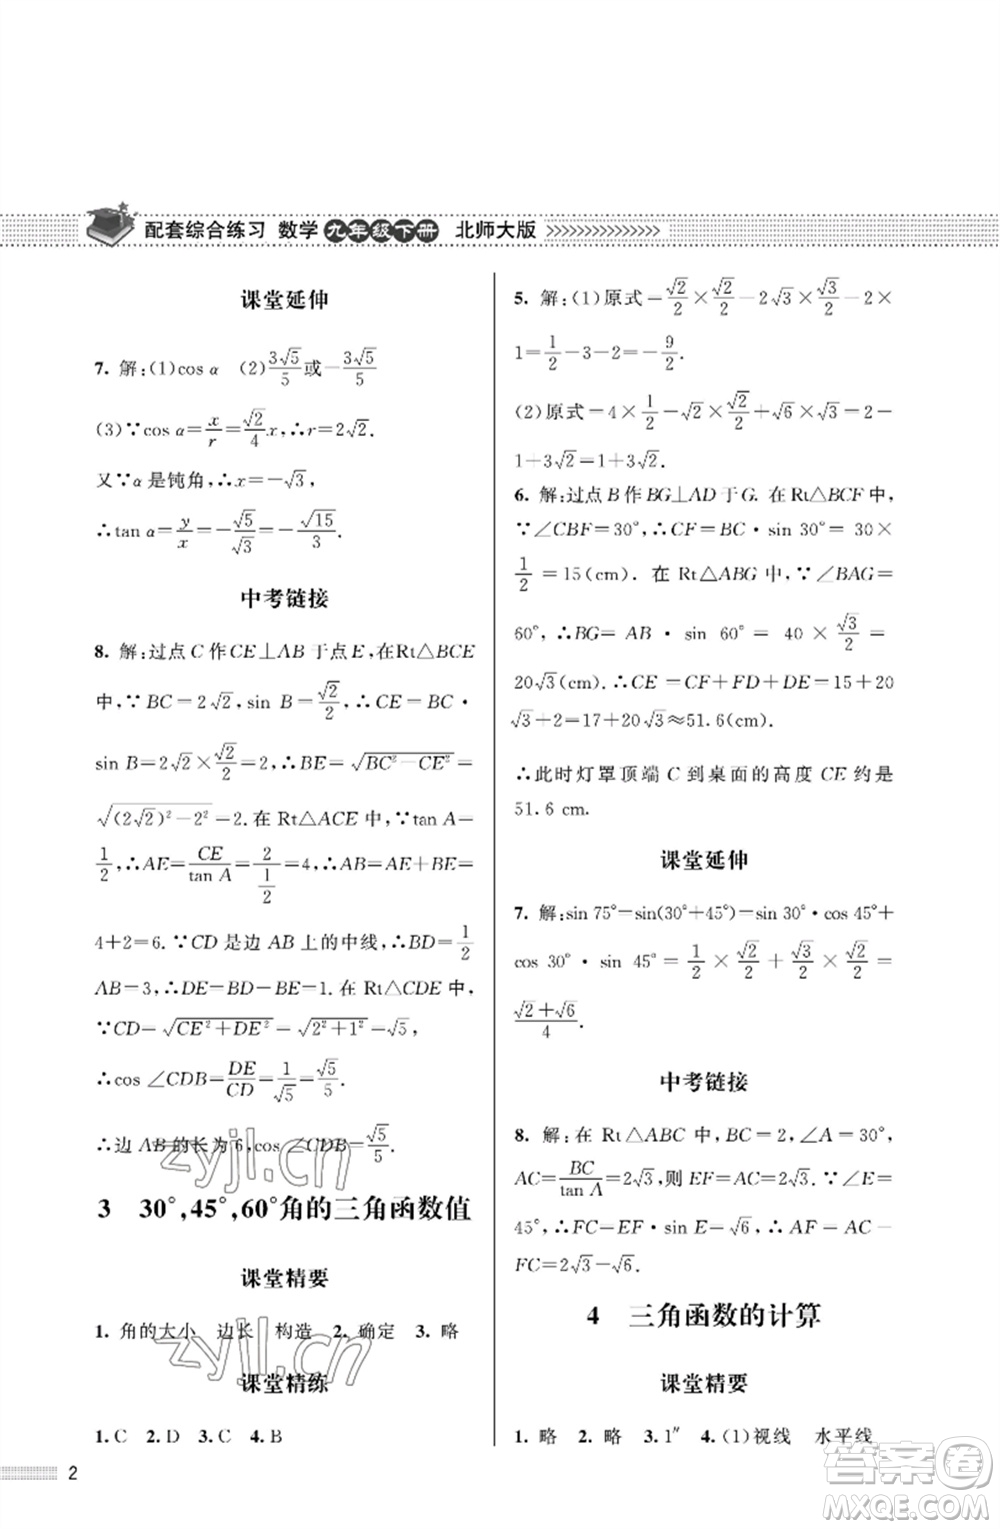 配套综合练习 数学 九年级下册 北师大版
课堂延伸
7. 解:(1)cos α (2)3√5/5或-3√5/5
(3)∵cos α=x/r=√2/4 x,∴r=2√2.
又∵α是钝角,∴x=-√3,
∴tan α=y/x=-√5/√3=-√15/3.
中考链接
8. 解:过点C作CE⊥AB于点E,在Rt△BCE
中,∵BC=2√2,sin B=√2/2,∴CE=BC·
sin B=2√2×√2/2=2,∴BE=√(BC²-CE²)=
√((2√2)²-2²)=2.在Rt△ACE中,∵tan A=
1/2,∴AE=CE/tan A=2/(1/2)=4,∴AB=AE+BE=
4+2=6.∵CD是边AB上的中线,∴BD=1/2
AB=3,∴DE=BD-BE=1.在Rt△CDE中,
∵CD=√(CE²+DE²)=√(2²+1²)=√5,
∴cos ∠CDB=DE/CD=1/√5=√5/5.
∴边AB的长为6,cos ∠CDB=√5/5.
3 30°,45°,60°角的三角函数值
课堂精要
1. 角的大小 边长 构造 2. 确定 3. 略
课堂精练
1. C 2. D 3. C 4. B
5. 解:(1)原式=√2/2×√2/2-2√3×√3/2-2×
1=1/2-3-2=-9/2.
(2)原式=4×1/2-√2×√2/2+√6×√3=2-
1+3√2=1+3√2.
6. 解:过点B作BG⊥AD于G.在Rt△BCF中,
∵∠CBF=30°,∴CF=BC·sin 30°=30×
1/2=15(cm).在Rt△ABG中,∵∠BAG=
60°,∴BG=AB·sin 60°=40×√3/2=
20√3(cm).∴CE=CF+FD+DE=15+20
√3+2=17+20√3≈51.6(cm).
∴此时灯罩顶端C到桌面的高度CE约是
51.6 cm.
课堂延伸
7. 解:sin 75°=sin(30°+45°)=sin 30°·cos 45°+
cos 30°·sin 45°=1/2×√2/2+√3/2×√2/2=
(√2+√6)/4.
中考链接
8. 解:在Rt△ABC中,BC=2,∠A=30°,
AC=BC/tan A=2√3,则EF=AC=2√3,∵∠E=
45°,∴FC=EF·sin E=√6,∴AF=AC-
FC=2√3-√6.
4 三角函数的计算
课堂精要
1. 略 2. 略 3. 1″ 4. (1)视线 水平线
2
zyjl.cn
zyjl.cn
答案圈
MXQE.COM